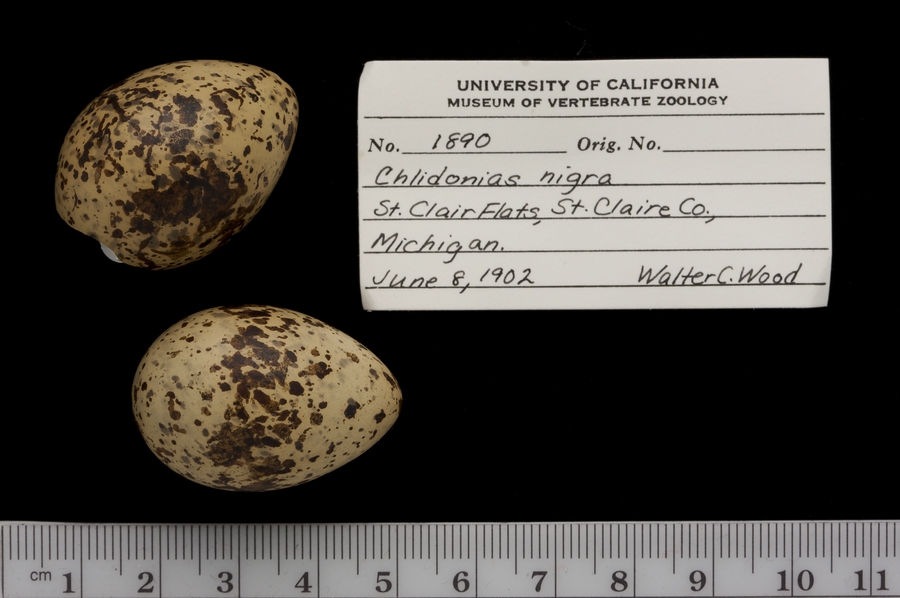 UNIVERSITY OF CALIFORNIA
MUSEUM OF VERTEBRATE ZOOLOGY
No. 1890 Orig. No.
Chlidonias nigra
St. Clair Flats, St. Claire Co.,
Michigan.
June 8, 1902 Walter C. Wood
cm 1 2 3 4 5 6 7 8 9 10 11